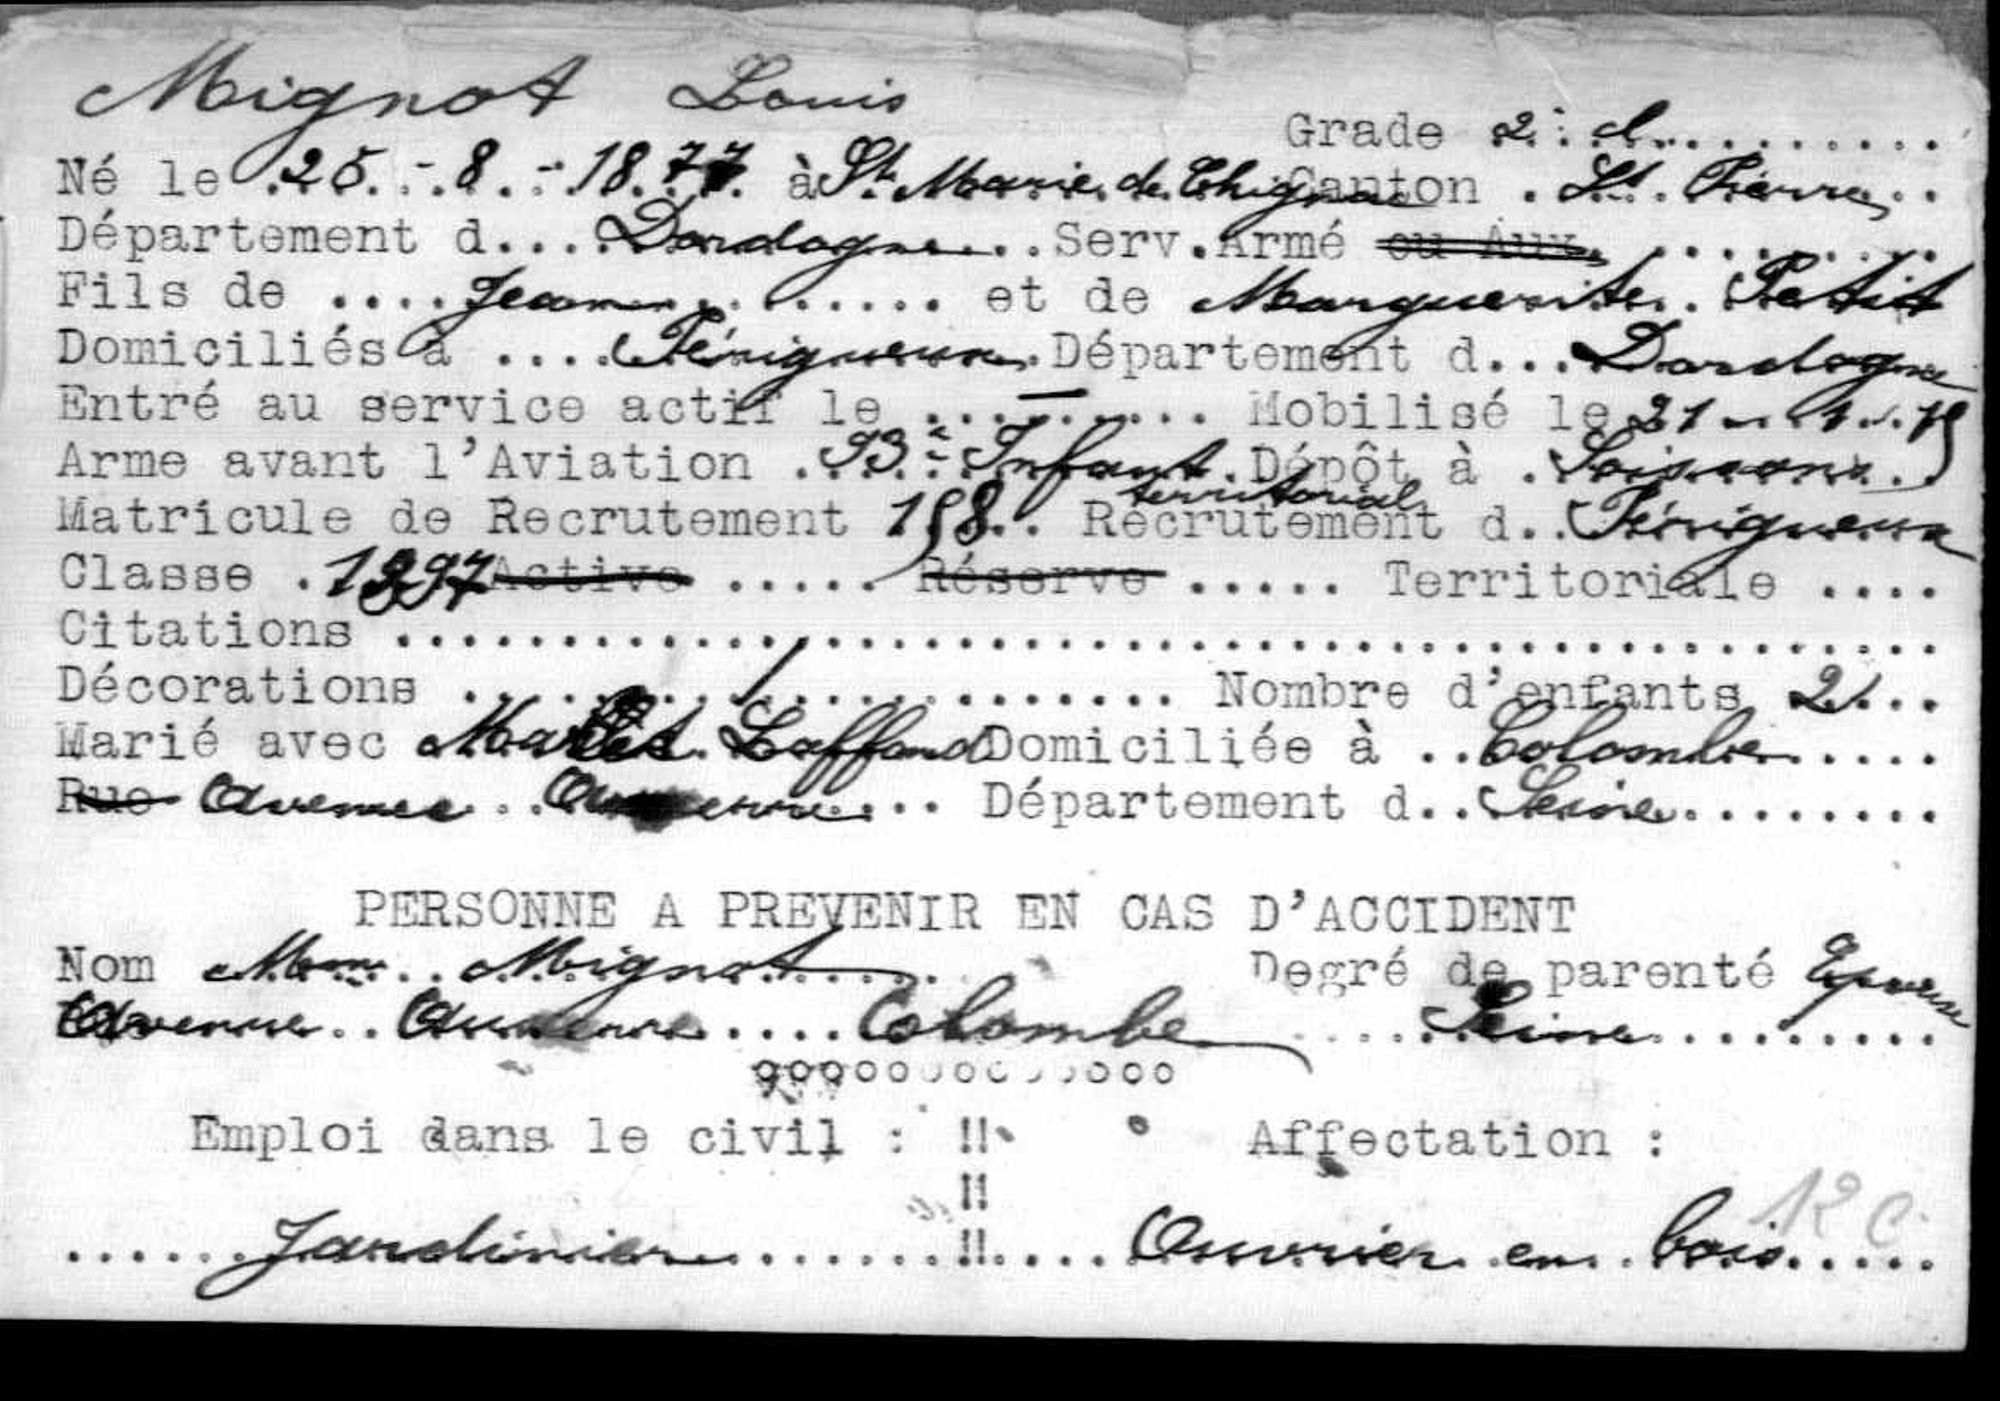 Mignot Louis
Grade 2e cl.
Né le 25 - 8 - 1877 à Ste Marie de Chignac Canton St. Pierre
Département d... Dordogne Serv. Armé ou Aux.
Fils de .... Jean et de Marguerite Petit
Domiciliés à .... Périgueux Département d... Dordogne
Entré au service actif le ... — ... Mobilisé le 21 - 1 - 15
Arme avant l'Aviation 93e Infant. territorial Dépôt à Soissons
Matricule de Recrutement 158 Recrutement d.. Périgueux
Classe 1897 Active ..... Réserve ..... Territoriale ....
Citations
Décorations / Nombre d'enfants 2
Marié avec Laffond Domiciliée à .. Colombe
Rue Avenue Département d.. Seine
PERSONNE A PREVENIR EN CAS D'ACCIDENT
Nom Mme Mignot Degré de parenté Epouse
Avenue Colombe Seine
ooooooooooooo
Emploi dans le civil : !! Affectation :
!!
12 C
Jardinier !! Ouvrier en bois